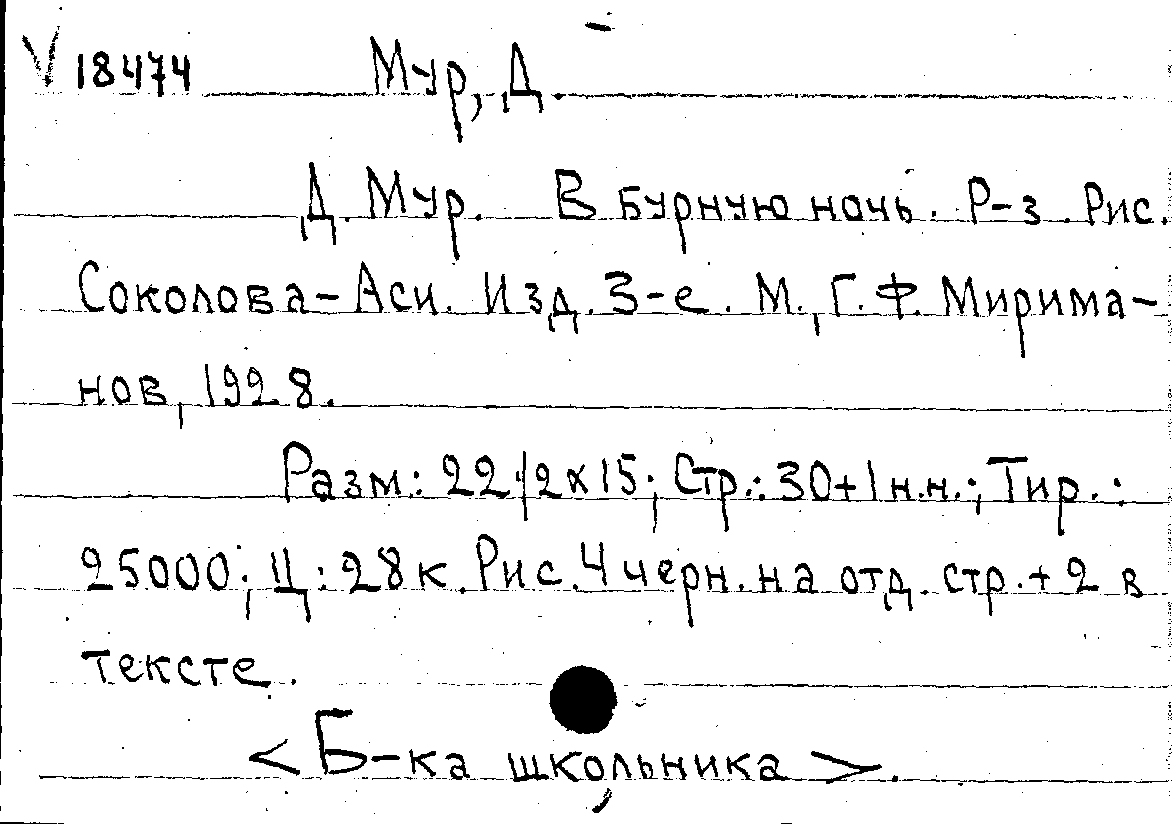 V 18474 Мур, Д.
Д. Мур. В бурную ночь. Р-з. Рис.
Соколова-Аси. Изд. 3-е. М., Г.Ф. Мирима-
нов, 1928.
Разм.: 22 1/2 x 15; Стр.: 30+1 н.н.; Тир.:
25000; Ц.: 28 к. Рис. 4 черн. на отд. стр. + 2 в
тексте.
<Б-ка школьника>.